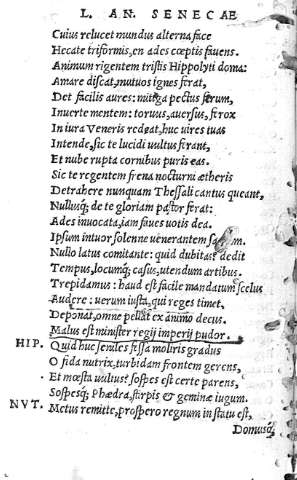 L. AN. SENECAE
Cuius relucet mundus alterna face
Hecate triformis, en ades cœptis fauens.
Animum rigentem tristis Hippolyti doma:
Amare discat, mutuos ignes ferat,
Det facilis aures: mitiga pectus ferum,
Inuerte mentem: toruus, auersus, ferox
In iura Veneris redeat, huc uires tuas
Intende, sic te lucidi uultus ferant,
Et nube rupta cornibus puris eas.
Sic te regentem frena nocturni ætheris
Detrahere nunquam Thessali cantus queant,
Nullusq; de te gloriam pastor ferat:
Ades inuocata, iam faues uotis dea.
Ipsum intuor solenne uenerantem
Nullo latus comitante: quid dubitas? dedit
Tempus, locumq; casus, utendum artibus.
Trepidamus: haud est facile mandatum scelus
Audere: uerum iusta, qui reges timet,
Deponat, omne pellat ex animo decus.
Malus est minister regij imperij pudor.
HIP. Quid huc seniles fessa moliris gradus
O fida nutrix, turbidam frontem gerens,
Et mœsta uultus? sospes est certe parens,
Sospesq; Phædra, stirpis & geminæ iugum.
NVT. Metus remitte, prospero regnum in statu est,
Domusq;